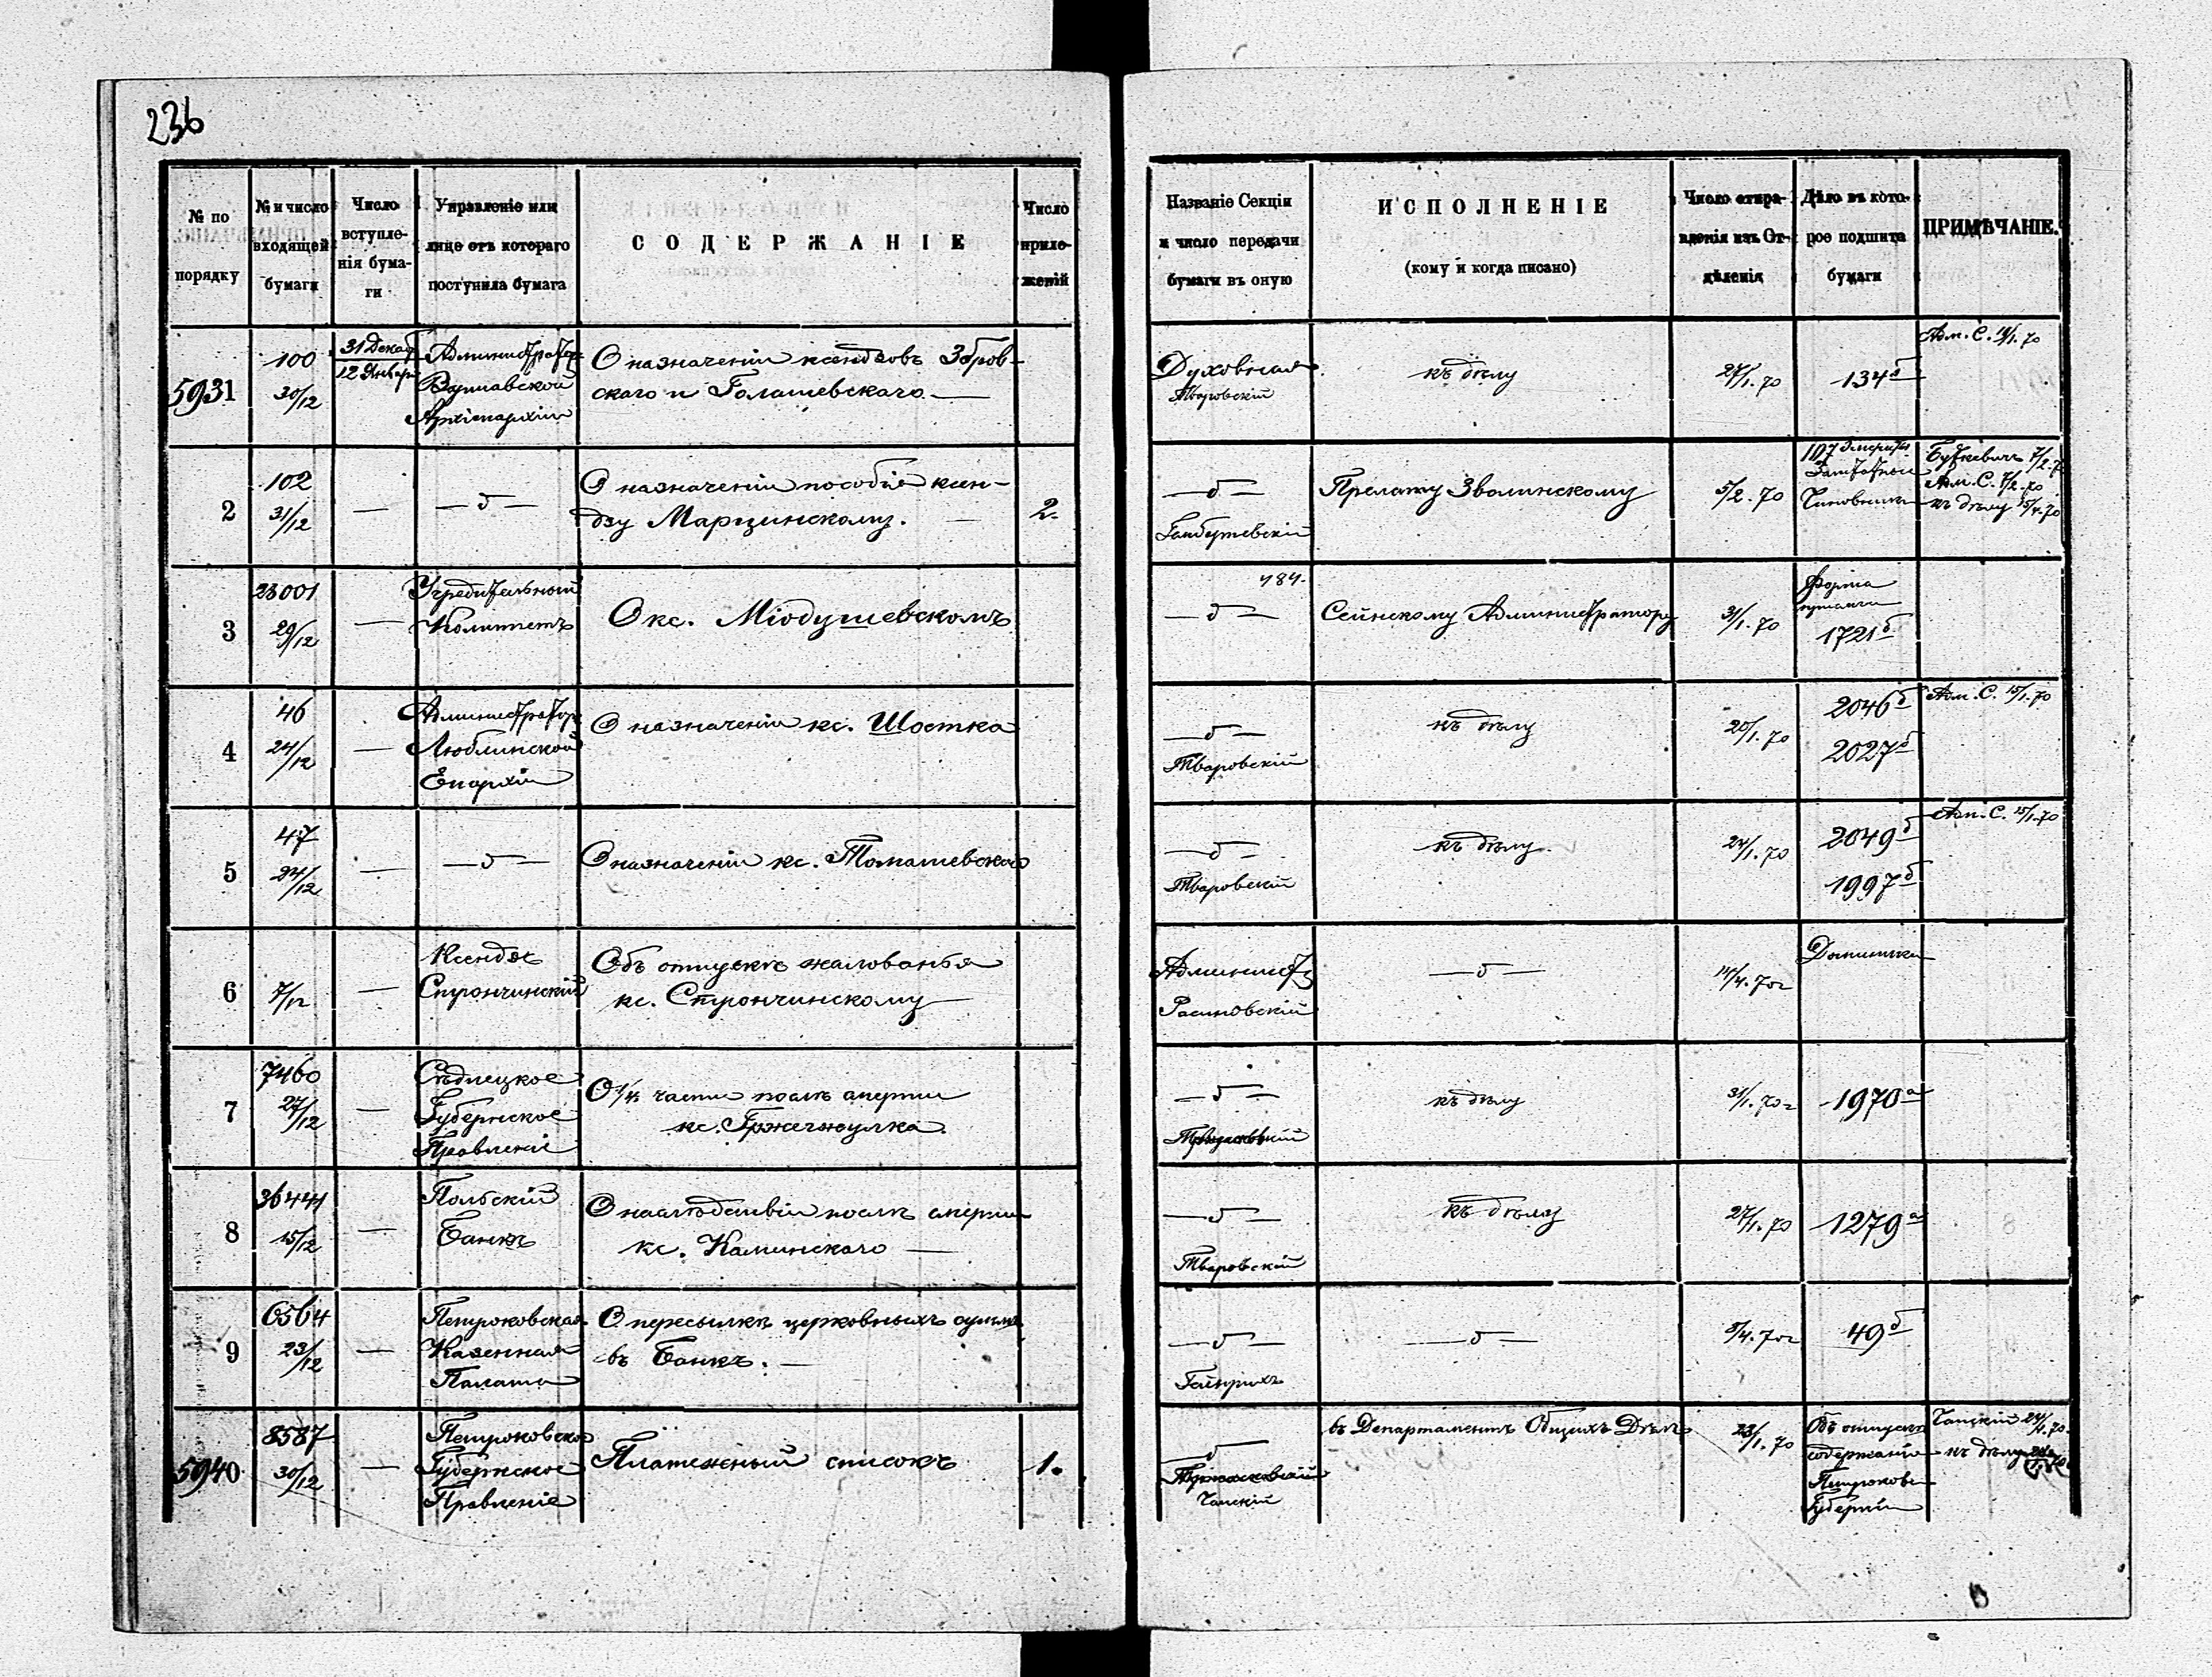 236
№ по порядку
№ и число входящей бумаги
Число вступленія бумаги
Управленіе или лице отъ котораго поступила бумага
СОДЕРЖАНІЕ
Число приложеній
Названіе Секціи и число передачи бумаги въ оную
ИСПОЛНЕНІЕ
(кому и когда писано)
Число отправленія изъ Отдѣленія
Дѣло въ которое подшита бумаги
ПРИМѢЧАНІЕ.
5931
100
30/12
31 Декаб
12 Январ
Администраторъ
Варшавской
Архіепархіи
О назначеніи ксендзовъ Збров-
скаго и Голашевскаго —
Духовная
Тваровскій
къ дѣлу
27/1. 70
134 б
Адм. С. 14/1. 70
2
102
31/12
—
— д —
О назначеніи пособія ксен-
дзу Марцинскому. —
2.
— д —
Гамбертевскій
Прелату Зволинскому
5/2. 70
107
Буткевичъ 7/2. 7
Адм. С. 7/2. 70
къ дѣлу 15/4. 70
3
23001
29/12
—
Учредительный
Комитетъ
О кс. Міодушевскомъ
484.
— д —
Сейнскому Администратору
31/1. 70
форма
1721 б
4
46
24/12
—
Администраторъ
Люблинской
Епархіи
О назначеніи кс. Шостка
— д —
Тваровскій
къ дѣлу
20/1. 70
2046 б
2027 б
Адм. С. 15/1. 70
5
47
24/12
—
— д —
О назначеніи кс. Томашевскаго
— д —
Тваровскій
къ дѣлу.
24/1. 70
2049 б
1997 б
Адм. С. 15/1. 70
6
7/12
—
Ксендзъ
Стрончинскій
Объ отпускѣ жалованья
кс. Стрончинскому —
Админист
Расиновскій
— д —
14/4. 70г
7
7460
27/12
—
Сѣдлецкое
Губернское
Правленіе
О 1/4 части послѣ смерти
кс. Гржегжулка.
— д —
къ дѣлу
31/1. 70г
1970 а
8
36441
15/12
—
Польскій
Банкъ
О наслѣдствіи послѣ смерти
кс. Каминскаго —
— д —
Тваровскій
къ дѣлу
27/1. 70
1279 а
9
6564
23/12
—
Петроковская
Казенная
Палата
О пересылкѣ церковныхъ суммъ
въ Банкъ. —
— д —
Гейнрихъ
— д —
8/4. 70г
49 б
5940
8587
30/12
—
Петроковское
Губернское
Правленіе
Платежный списокъ
1.
д
Чапскій
въ Департаментъ Общихъ Дѣлъ
23/1. 70
Объ отпускѣ
содержанія
Петроковс
Губерніи
Чапскій 24/1. 70.
къ дѣлу